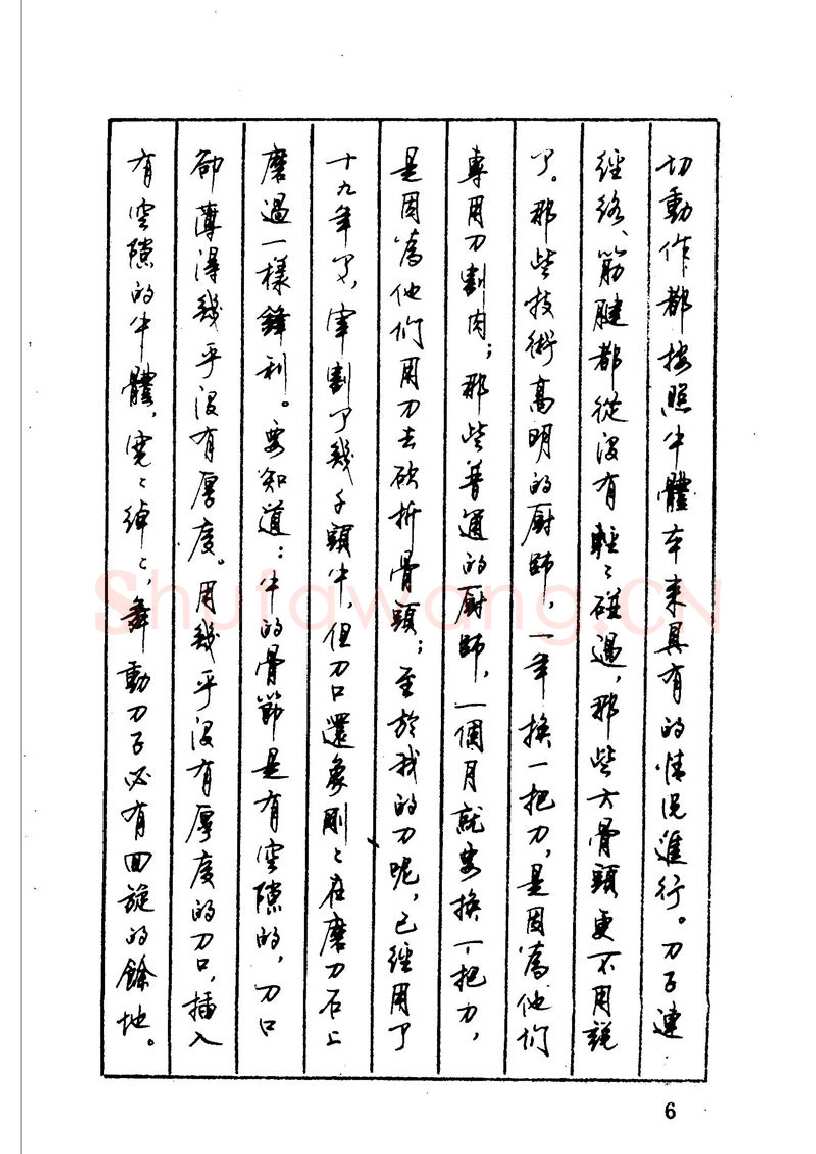 切動作都按照牛體本來具有的情況進行。刀子連
經絡、筋腱都從沒有輕〻碰過，那些大骨頭更不用說
了。那些技術高明的厨師，一年換一把刀，是因為他們
專用刀割肉；那些普通的厨師，一個月就要換一把刀，
是因為他们用刀去砍折骨頭；至於我的刀呢，已經用了
十九年了，宰割了幾千頭牛，但刀口還象剛〻在磨刀石上
磨過一樣鋒利。要知道：牛的骨節是有空隙的，刀口
卻薄得幾乎沒有厚度。用幾乎沒有厚度的刀口，插入
有空隙的牛體，寬〻綽〻，舞動刀子必有回旋的餘地。
6
Shufawang.CN